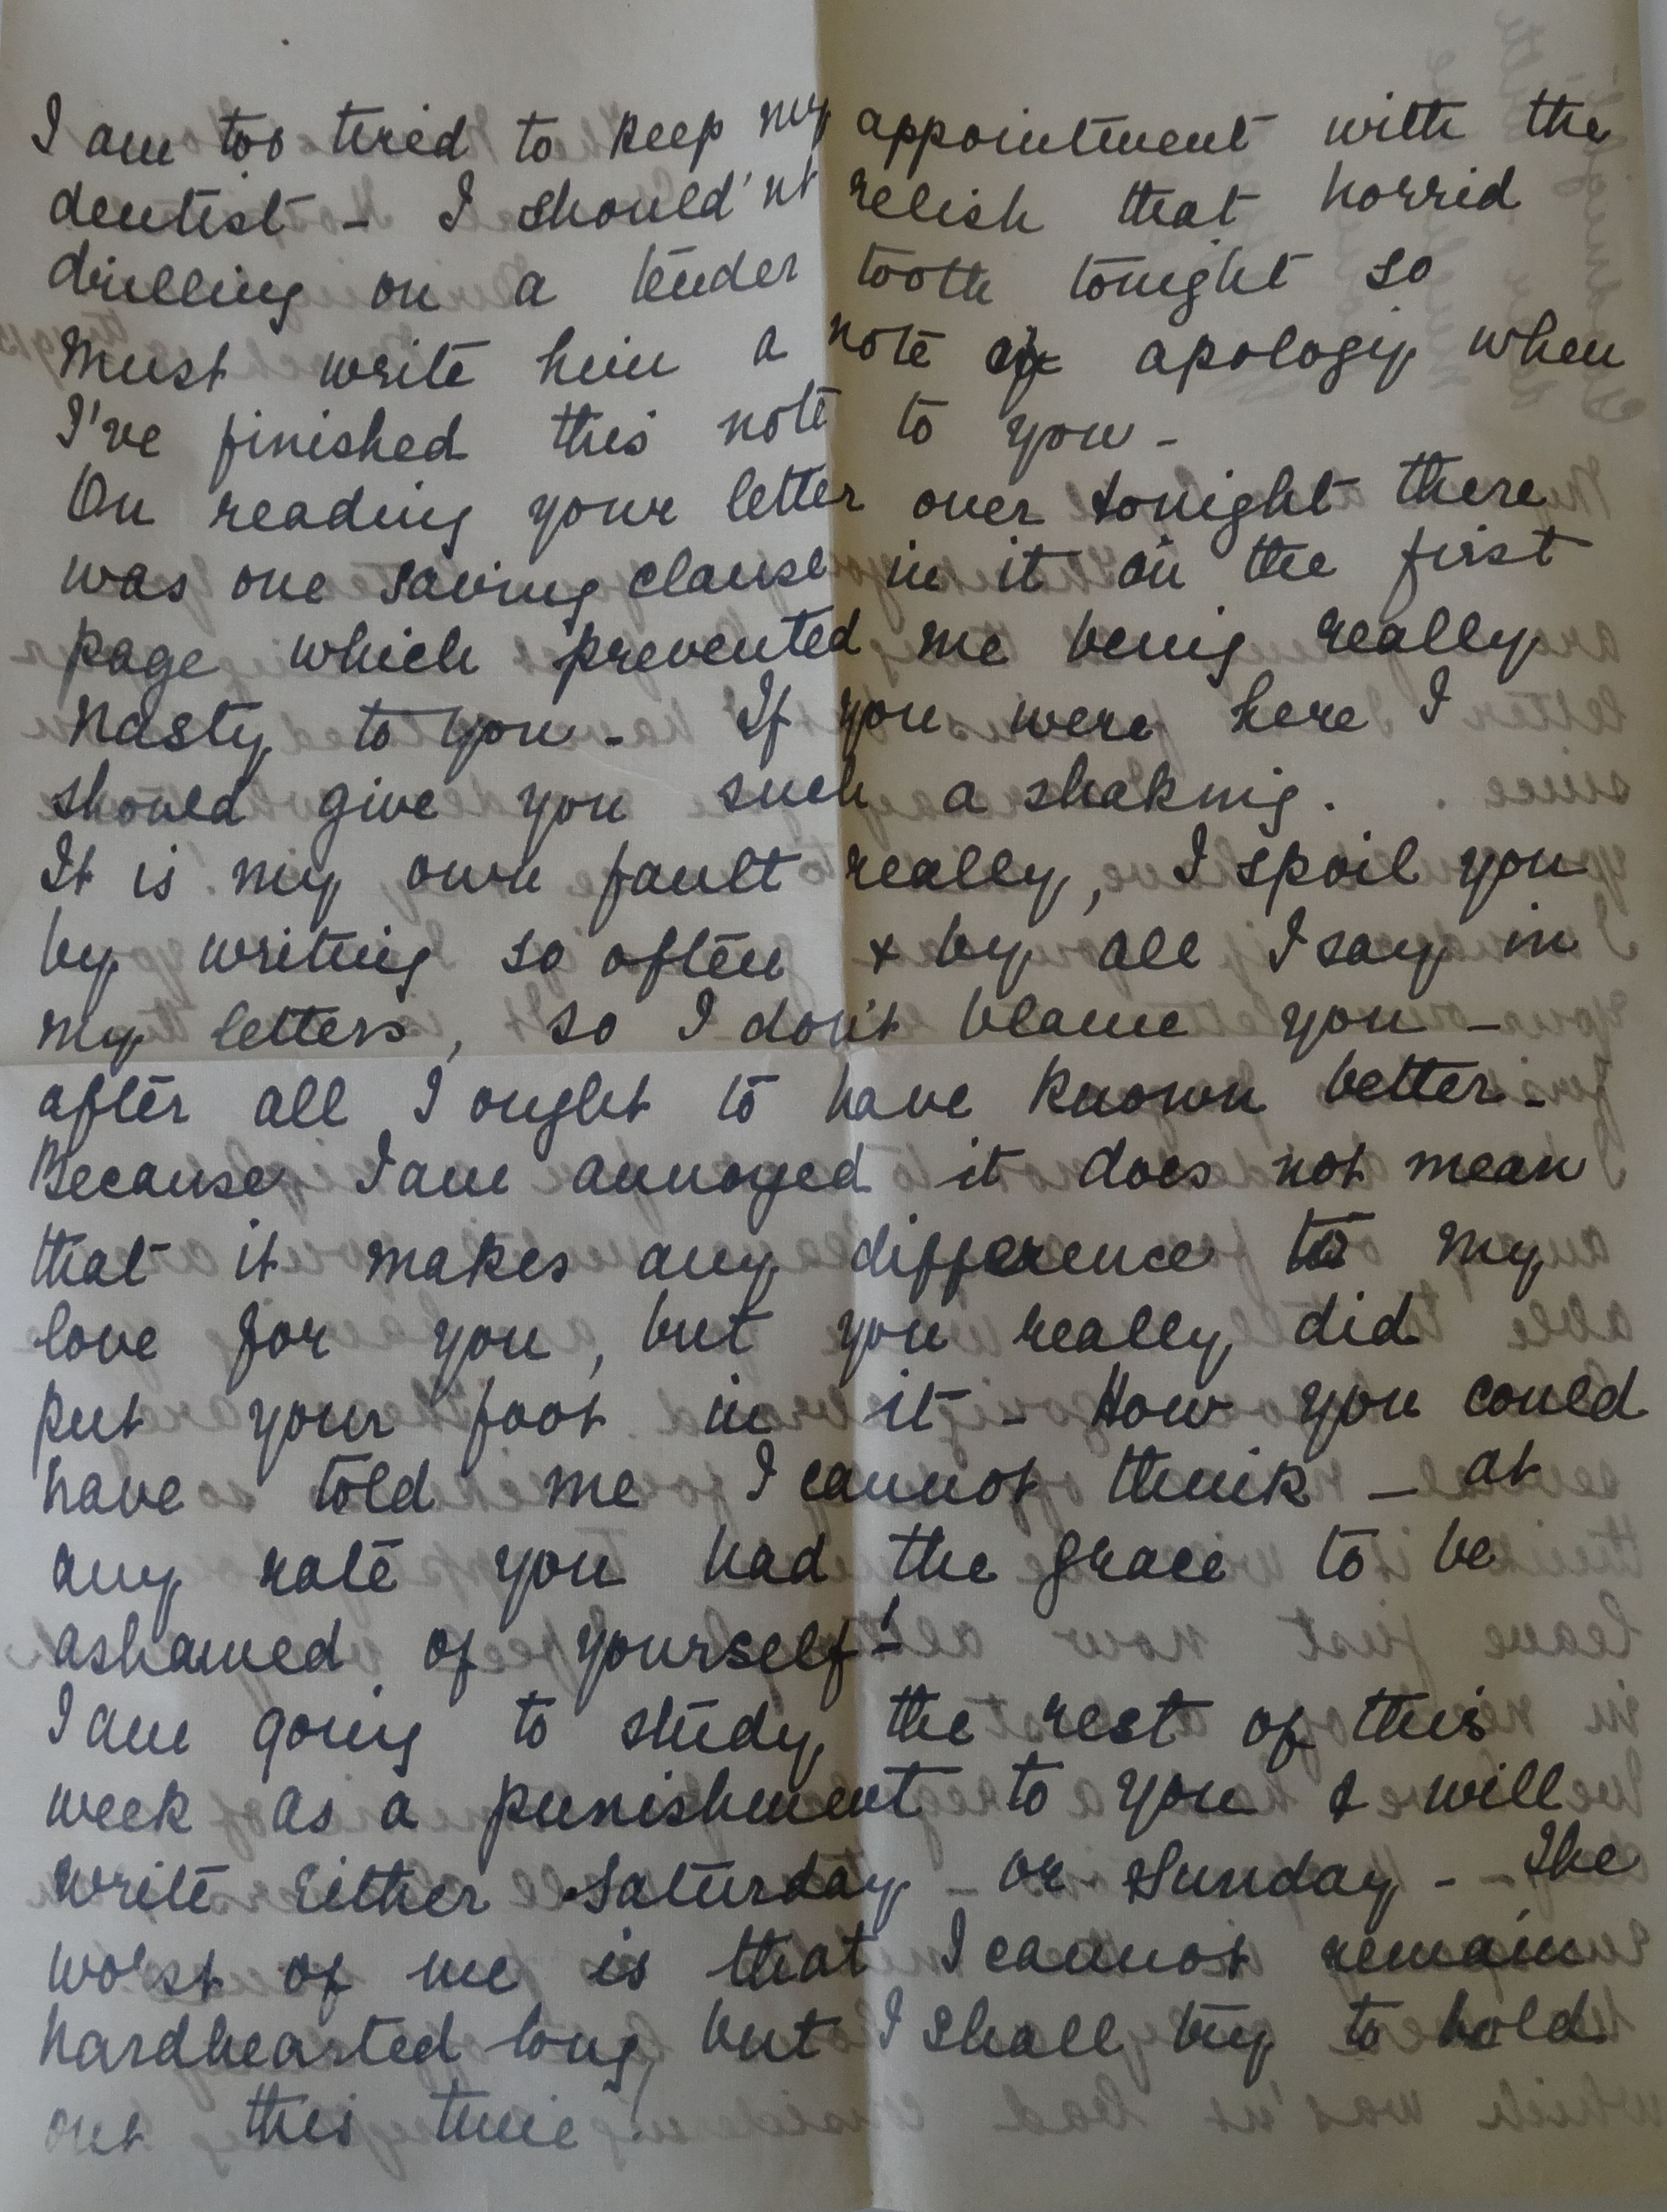 I am too tired to keep my appointment with the
dentist - I should'nt relish that horrid
drilling on a tender tooth tonight so
must write him a note of apology when
I've finished this note to you -
On reading your letter over tonight there
was one saving clause in it on the first
page which prevented me being really
nasty to you - If you were here I
should give you such a shaking.
It is my own fault really, I spoil you
by writing so often & by all I say in
my letters, so I don't blame you -
after all I ought to have known better -
Because I am annoyed it does not mean
that it makes any difference to my
love for you, but you really did
put your foot in it - How you could
have told me I cannot think - at
any rate you had the grace to be
ashamed of yourself!
I am going to study the rest of this
week as a punishment to you & will
write either Saturday - or Sunday - The
worst of me is that I cannot remain
hardhearted long, but I shall try to hold
out this time!